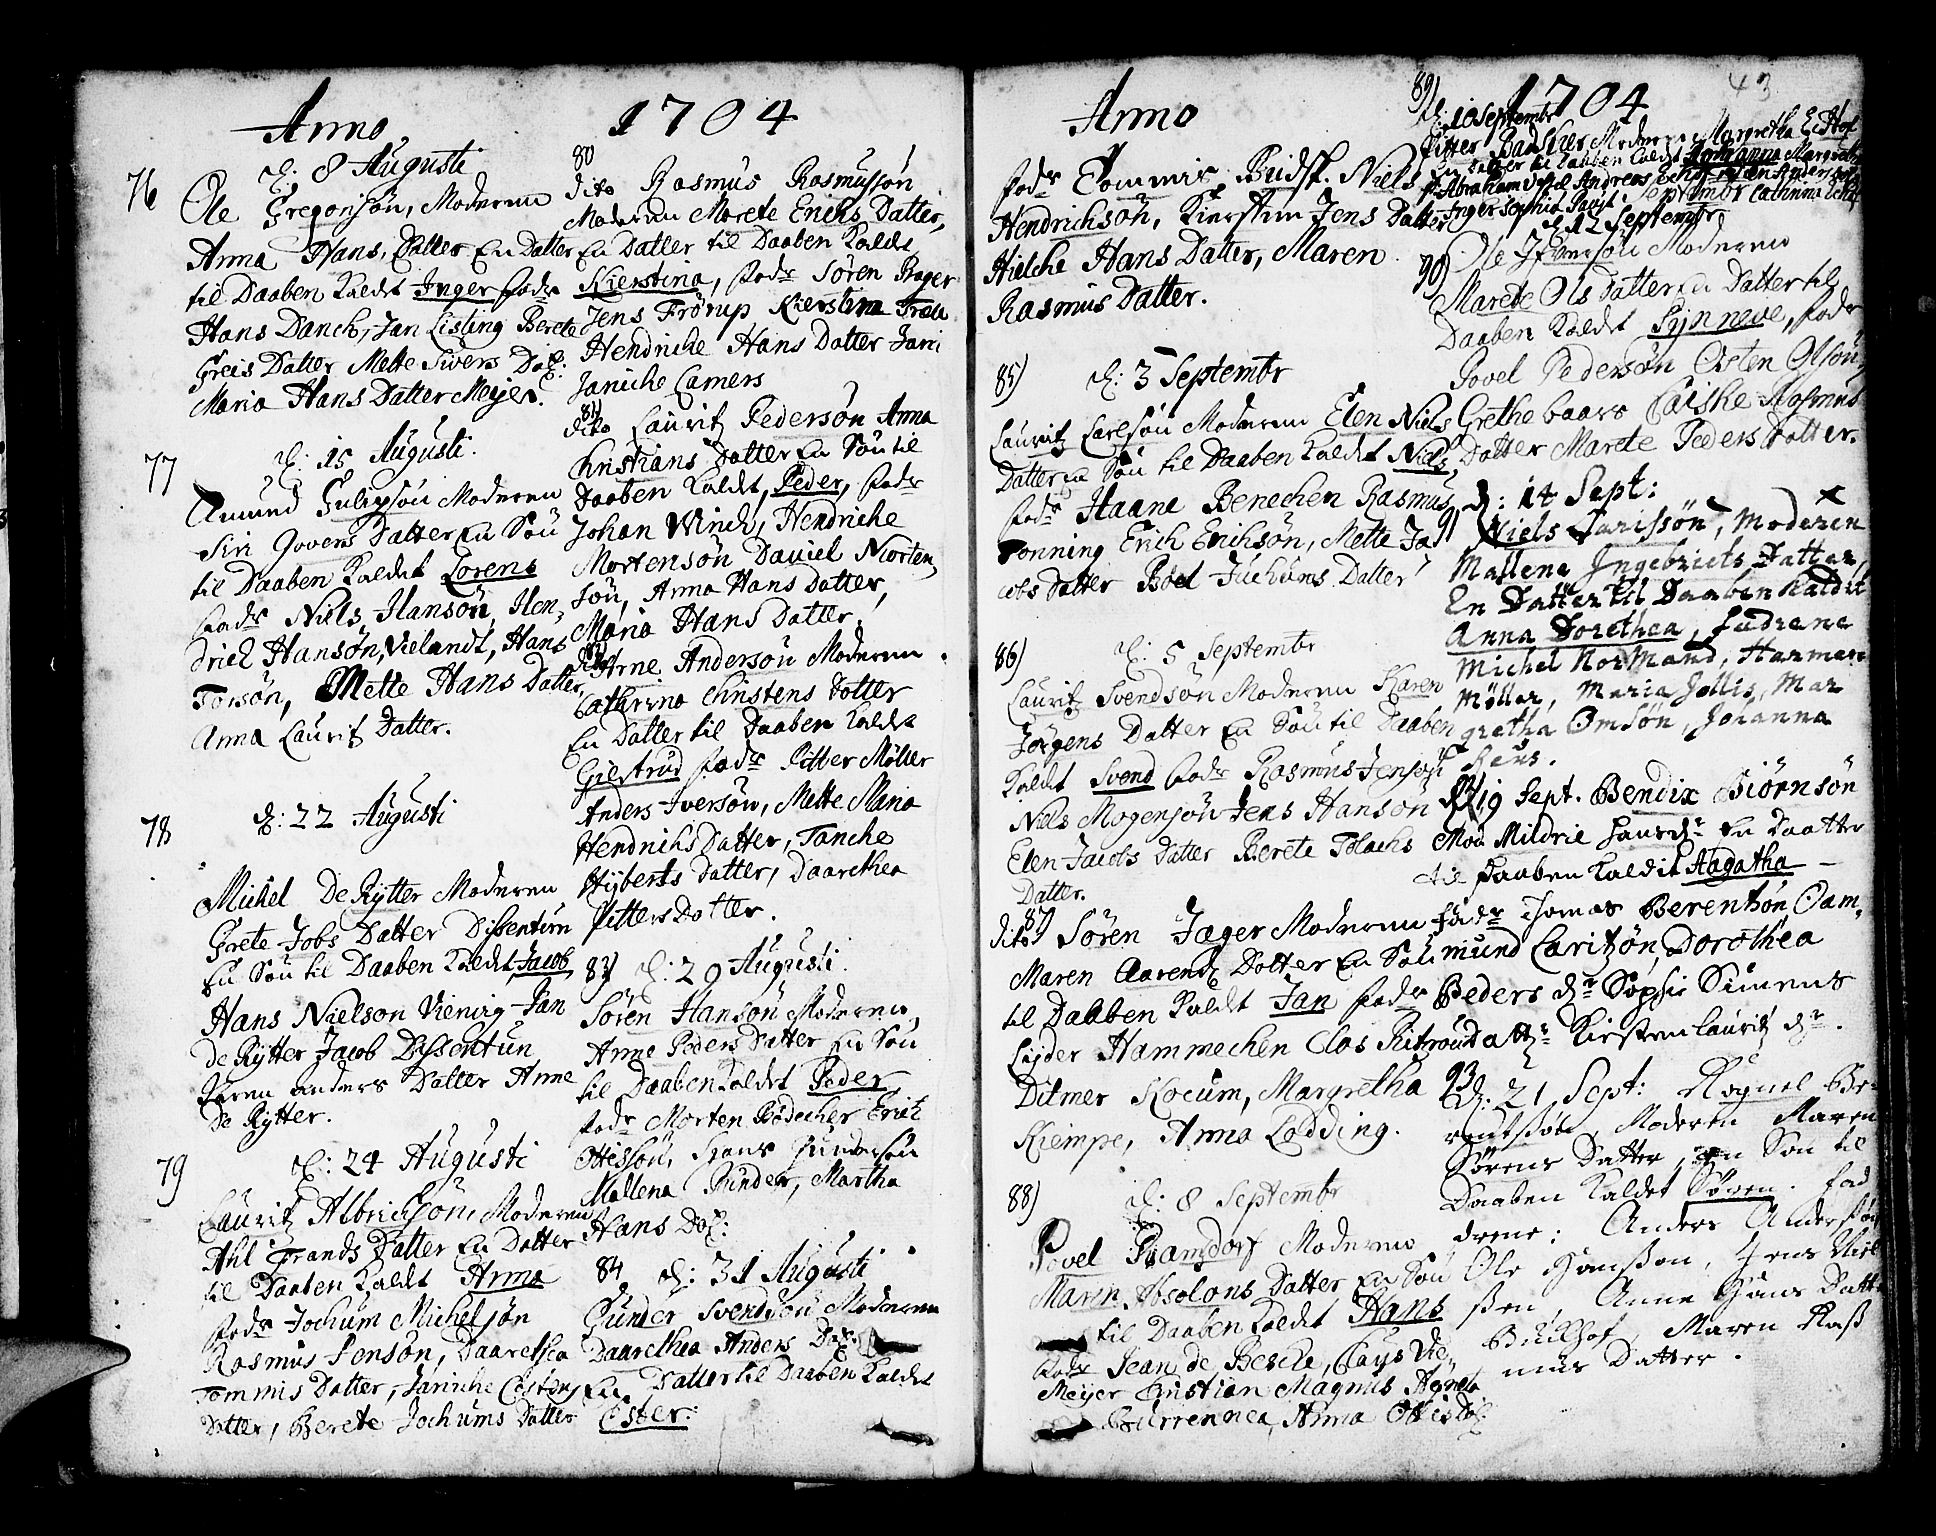 Anno 1704
76
d: 8 Augusti
Ole Gregorisøn, Moderen
Anna Hans, Datter En Datter
til Daaben Kaldt Inger fadr
Hans Danch, Jan Listing Berete
Greis Datter Mette Sivers Dat:
Maria Hans Datter Meyer.
77
d: 15 Augusti.
Amund Moderen
Siri Govers Datter En Søn
til Daaben Kaldet Lorens
fadr Niels Hansøn, Hen,
drich Hansøn, Vielandt, Hans
Torsøn, Mette Hans Datter,
Anna Lauritz Datter.
78
d: 22 Augusti
Michel De Rytter Moderen
Grete Jobs Datter Dissentun
En Søn til Daaben Kaldet, Jacob,
Hans Nielson Vienvig Jan
de Rytter Jacob Dissentun
Karen anders Datter Anne
De Rytter.
79
d: 24 Augusti
Lauritz Albrichsøn, Moderen
Ahl Trands Datter En Datter
til Daaben Kaldt Anna
fadr Jochum Michelsøn
Rasmus Jensøn, Daarethea
Tommis Datter, Janiche Costens
Datter, Berete Jochums Datter
80
dito Rasmus Rasmussøn
Moderen Marete Erichs Datter,
En Datter til Daaben Kaldt
Kierstina, fadr Søren Prager
Jens Frørup Kierstina
Hendriche Hans Datter Jani
Janiche Camers
81
dito Lauritz Pedersøn Anna
Christians Datter En Søn til
Daaben Kaldt, Peder, fadr
Johan Winch, Hendriche
Mortensøn Daniel Morten,
søn, Anna Hans Datter,
Maria Hans Datter.
dito Arne Andersøn Moderen
Cathrina Christens Datter
En Datter til Daaben Kaldt
Giestrud fadr Pitter Møller
Anders Iversøn, Mette Maria
Hendrichs Datter, Tanche
Hyberts Datter, Daarethea
Pitters Datter.
83) d: 29 Augusti.
Søren Hansøn Moderen,
Anne Peders Datter En Søn
til Daaben Kaldet Peder
fadr Morten Bødecher Erich
Ottessøn, Hans Gundersøn
Mallena Gunder, Martha
Hans Dat:
84 d: 31 Augusti
Gunder Svendsøn Moderen
Daarethea Anders Dat:
En Datter til Daaben Kaldet
Ester:
Anno 1704
43
fadr Tommis Budsk. Niels
Hendrichsøn, Kiersten Jens Datter
Hielche Hans Datter, Maren
Rasmus Datter.
85)
d: 3 Septembr
Lauritz Carlsøn Moderen Elen Niels
Datter En Søn til Daaben Kaldt Niels,
fadr Haane Benechen Rasmus
Tonning Erich Erichsøn, Mette Ja
cobs Datter Boel Juchums Datter
86)
d: 5 Septembr
Lauritz Svendsøn Moderen Karen
Jørgens Datter En Søn til Daaben
Kaldt Svend fadr Rasmus Jensøn
Niels Mogensøn Jens Hansøn
Elen Jacobs Datter Berete Tolachs
Datter.
87)
dito Søren Jæger Moderen
Maren Aarends Datter En Søn
til Daaben Kaldt Jan fadr
Lyder Hammechen Clos
Ditmer Kocum, Margretha
Kiempe, Anna Lodding.
88)
d: 8 Septembr
Povel Ramsdorf Moderen
Maren Absolons Datter En Søn
til Daaben Kaldt Hans
fadr Jean de Besche, Clays De
Meyer Christian Magnus Agneta
Burrennea, Anna Ottis Dat:
89)
d: 10 Septembr
Pitter Moderen Margretha
En Datter til Daaben Kaldt Margreth
Abraham Andreas
Inger Sophia Cathrina
d: 12 Septembr
90)
Ole Moderen
Marete Ols Datter En Datter til
Daaben Kaldt Synneve, fadr
Povel Pedersøn Osten Olsøn,
Grethe baars Laiske Rasmus
Datter Marete Peders Datter.
91
d: 14 Sept:
Niels Larissøn, Moderen
Mallena Ingebricts Datter,
En Datter til Daaben Kaldit
Anna Dorethea, Fadrene
Michel NorMand, Harman
Møller, Maria Jellis, Mar
gretha Omsøn, Johanna
Reus.
19 Sept. Bendix Biørnsøn
Mod. Mildrie Hansdr En Daatter
til Daaben Kaldit Aagatha
fadr Thomas Berentsøn Oam,
mund Laritzøn, Dorothea
Peders dr Sophie Simens
dattr Kirsten Lauritz dr.
93
d: 21 Sept: Rognel Be-
rentsøn, Moderen Maren
Sørens Datter, en Søn til
Daaben Kaldet Søren. fad
drene: Anders Anderssøn
Ole Hanssøn, Jens Niel
sen, Anne Hans Datte
Buschof, Maren Ras
mus Datter.